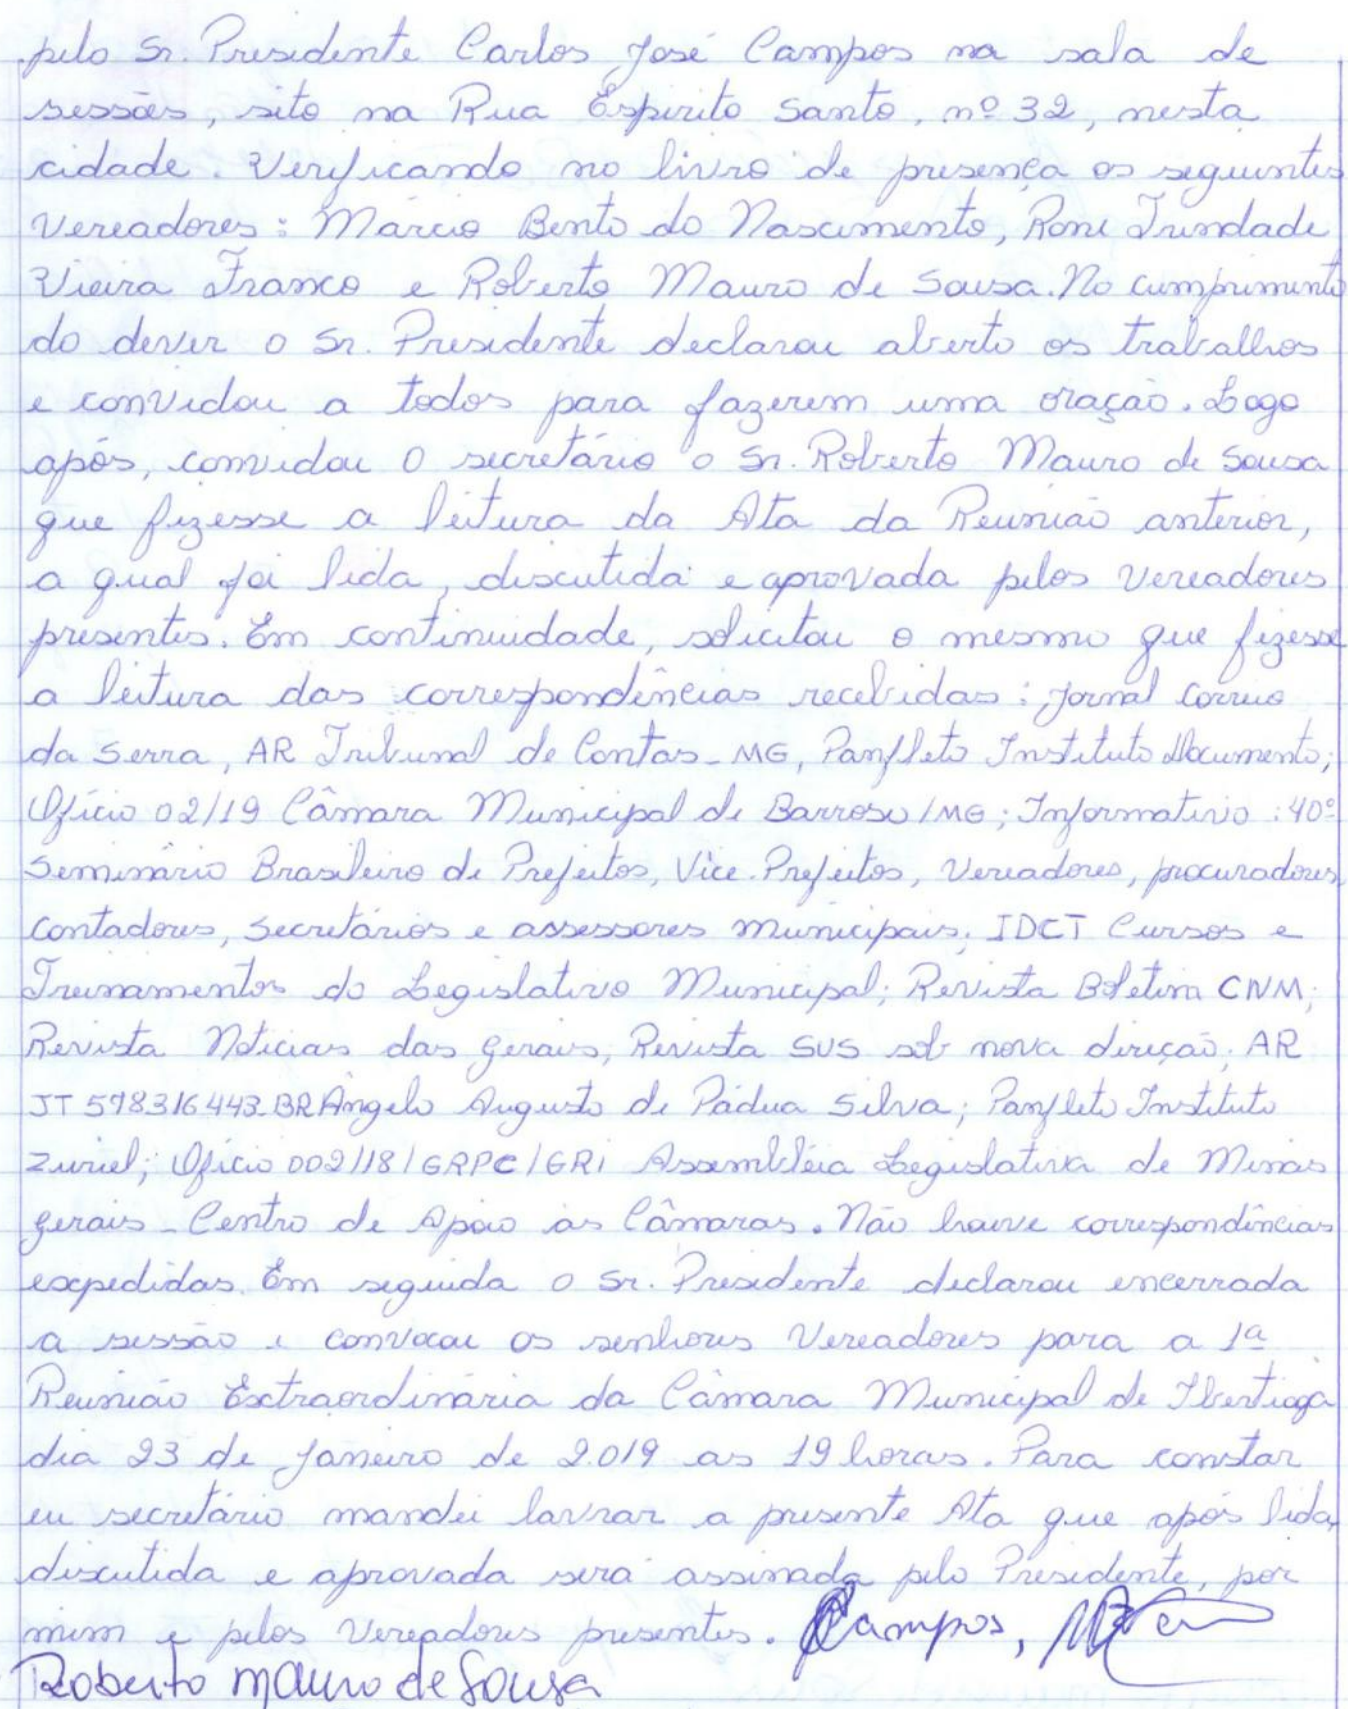 pelo Sr. Presidente Carlos José Campos na sala de
sessões, sito na Rua Espirito Santo, nº 32, nesta
cidade. Verificando no livro de presença os seguintes
Vereadores: Márcio Bento do Nascimento, Roni Trindade
Vieira Franco e Roberto Mauro de Sousa. No cumprimento
do dever o Sr. Presidente declarou aberto os trabalhos
e convidou a todos para fazerem uma oração. Logo
após, convidou o secretário o Sr. Roberto Mauro de Sousa
que fizesse a leitura da Ata da Reunião anterior,
a qual foi lida, discutida e aprovada pelos Vereadores
presentes. Em continuidade, solicitou o mesmo que fizesse
a leitura das correspondências recebidas: Jornal Correio
da Serra, AR Tribunal de Contas - MG, Panfleto Instituto Documento;
Ofício 02/19 Câmara Municipal de Barroso/MG; Informativo: 40º
Seminário Brasileiro de Prefeitos, Vice-Prefeitos, Vereadores, procuradores,
Contadores, Secretários e assessores municipais; IDCT Cursos e
Treinamentos do Legislativo Municipal; Revista Boletim CNM;
Revista Notícias das Gerais; Revista SUS sob nova direção; AR
JT 578316443-BR Ângelo Augusto de Pádua Silva; Panfleto Instituto
Zuriel; Ofício 002/18/GRPC/GRI Assembléia Legislativa de Minas
Gerais - Centro de Apoio às Câmaras. Não houve correspondências
expedidas. Em seguida o Sr. Presidente declarou encerrada
a sessão e convocou os senhores Vereadores para a 1ª
Reunião Extraordinária da Câmara Municipal de Ibertioga
dia 23 de Janeiro de 2.019 as 19 horas. Para constar
eu secretário mandei lavrar a presente Ata que após lida,
discutida e aprovada será assinada pelo Presidente, por
mim e pelos Vereadores presentes. Campos,
Roberto Mauro de Sousa